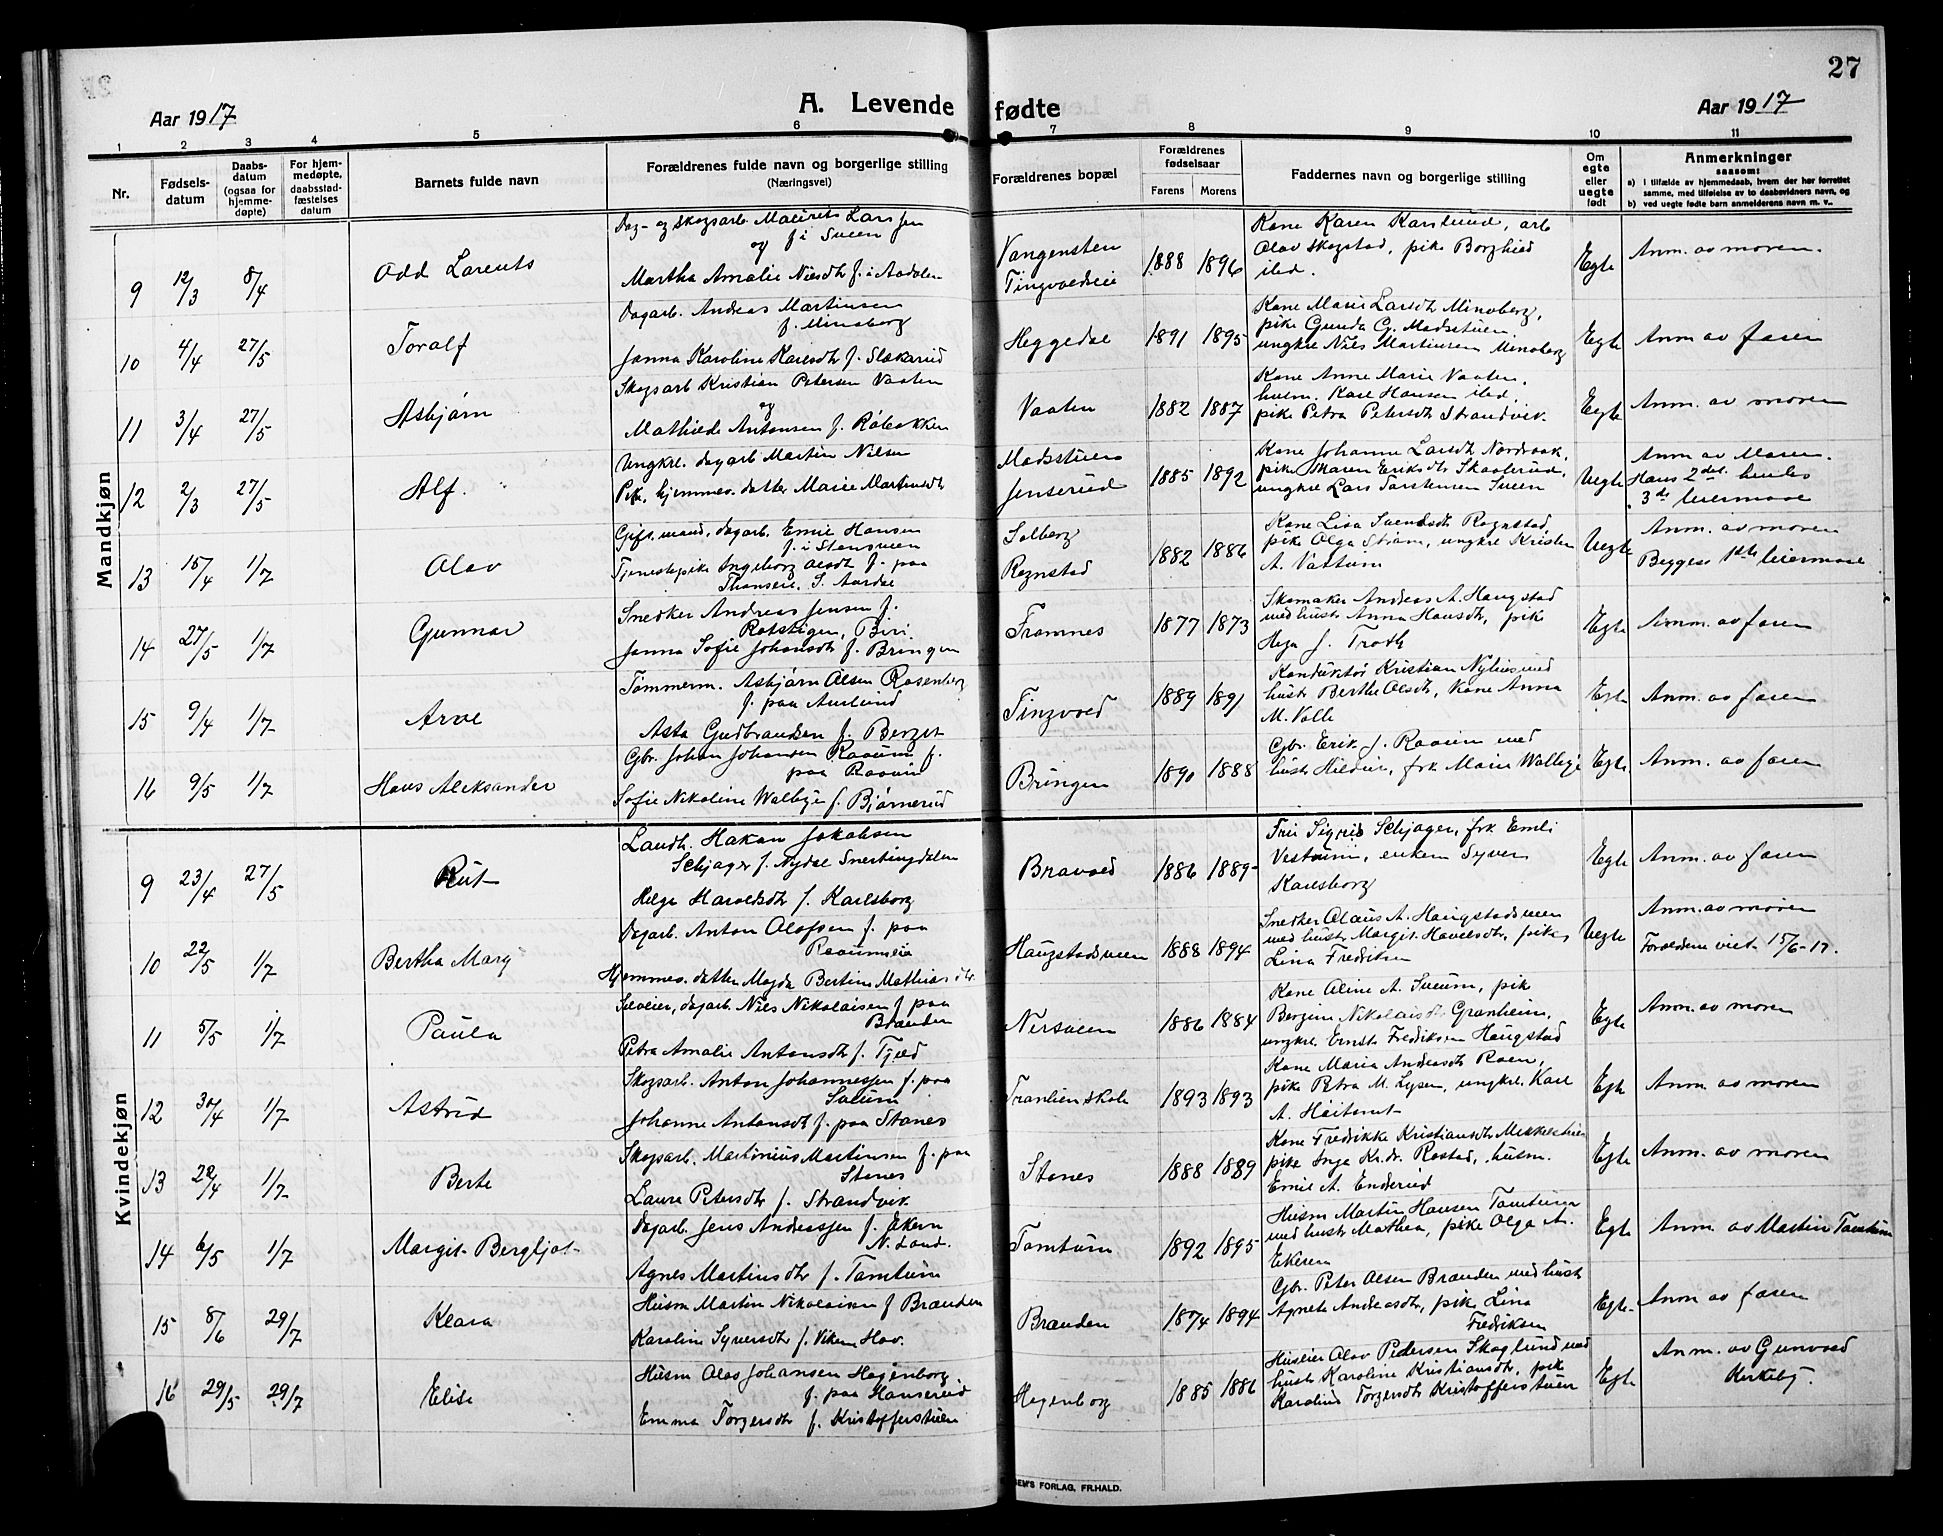 27
Aar 1917
A. Levende fødte
Aar 1917
1 2 3 4 5 6 7 8 9 10 11
Nr.
Fødsels-
datum
Daabs-
datum
(ogsaa for
hjemme-
døpte)
For hjem-
medøpte,
daabsstad-
fæstelses
datum
Barnets fulde navn
Forældrenes fulde navn og borgerlige stilling
(Næringsvei)
Forældrenes bopæl
Forældrenes
fødselsaar
Farens Morens
Faddernes navn og borgerlige stilling
Om
egte
eller
uegte
født
Anmerkninger
saasom:
a) i tilfælde av hjemmedaab, hvem der har forrettet
samme, med tilføielse av to daabsvidners navn, og
b) ved uegte fødte barn anmelderens navn m. v..
Mandkjøn
9 12/3 8/4 Odd Larents
Dag- og skogsarb. Maurits Larssen
og f. i Sveen
Martha Amalie Nilsdtr f. i Aadalen
Vangensten
Tingvoldseie
1888 1896
Kone Karen Karslund, arb
Olav Skogstad, pike Borghild
ibd.
Egte
Anm. av moren.
10 4/4 27/5 Toralf
Dagarb. Andreas Martinsen
f. Minoberg
Janna Karoline Karlsdtr f. Slåkarud
Heggedal
1891 1895
Kone Marie Larsdtr Minoberg,
pike Gunda G. Madsstuen,
ungkrl Nils Martinsen Minoberg
Egte
Anm av faren
11 3/4 27/5 Asbjørn
Skogsarb Kristian Petersen Vaaten
og
Mathilde Antonsen f. Røbakken
Vaaten
1882 1887
Kone Anne Marie Vaaten,
husm. Karl Hansen ibd.
pike Petra Petersdtr Strandvik.
Egte
Anm. av moren
12 2/3 27/5 Alf.
Ungkrl. dagarb Martin Nilsen
Pik. hjemmev. datter Marie Martinsdtr
Madsstuen
Jenserud
1885 1892
Kone Johanne Larsdtr Nordraak,
pike Maren Eriksdtr Skaalerud,
ungkrl Lars Torstensen Sveen
Uegte
Anm av Maren.
Hans 2det hendes
3de leiermaal
13 15/4 1/7 Olav
Gift mand, dagarb. Emil Hansen
f. i Stensveen
Tjenestepike Ingeborg Olsdtr f. paa
S. Aurdal
Solberg
Rognstad
1882 1886
Kone Lisa Svendsdtr Rognstad,
pike Olga Strøm, ungkrl Kristen
A. Vattum
Uegte
Anm. av moren
Begges 1ste leiermaal
14 27/5 1/7 Gunnar
Snedker Andreas Jensen f.
Rotstigen, Biri.
Janna Sofie Johansdtr f. Bringen
Framnes
1877 1873
Skomaker Andreas A. Haugstad
med hustr. Anna Hansdtr, pike
Helga J. Troth
Egte
Anm. av faren
15 9/4 1/7 Arve
Tømmerm. Asbjørn Olsen Rosenberg
f. paa Aurlund
Asta Gudbrandsen f. Berget
Tingvold
1889 1891
Konduktør Kristian Nyhus med
hustr Berthe Olsdtr, Kone Anna
M. Volle
Egte
Anm. av faren
16 9/5 1/7 Hans Aleksander
Gbr. Johan Johansen Raaum f.
paa Raaum
Sofie Nikoline Walbye f. Bjørnerud
Bringen
1890 1888
Gbr. Erik J. Raaum med
hustr Hildur, frk Marie Walbye
Egte
Anm. av faren
Kvindekjøn
9 23/4 27/5 Rut
Landh. Hakon Jakobsen
Schjager f. Nydal Snertingdalen
Helga Haraldsdtr f. Karlsborg
Bravold
1886 1889
Fru Sigrid Schjager, frk Emli
Vestrum, enkem Syver
Karlsborg
Egte
Anm. av faren
10 22/5 1/7 Bertha Mary
Dagarb. Anton Olafsen f. paa
Raaumseie
Hjemmev. datter Magda Bertine Mathiasdtr
Haugstadsveen
1888 1894
Snedker Olaus A. Haugstadsveen
med hustr. Margit Havelsdtr, pike
Lina Fredriksen
Uegte
Anm. av moren
Forældrene viet 15/6-17.
11 5/5 1/7 Paula
Selveier, dagarb. Nils Nikolaisen f paa
Brænden
Petra Amalie Antonsdtr f. Fjeld
Nersveen
1886 1884
Kone Aline A. Sveum, pik
Bergine Nikolaisdtr. Granheim,
ungkrl. Ernst Fredriksen Haugstad
Egte
Anm. av moren
12 30/4 1/7 Astrid
Skogsarb. Anton Johannessen f. paa
Sveum
Johanne Antonsdtr f. paa Stanes
Tranlien skole
1893 1893
Kone Maria Andersdtr Roen,
pike Petra M. Lysen, ungkrl. Karl
A. Høitomt
Egte
Anm. av moren
13 22/4 1/7 Berte
Skogsarb. Martinius Martinsen f. paa
Stanes
Laura Petersdtr f. Strandvik
Stanes
1888 1889
Kone Fredrikke Kristiansdtr Mikkelstuen
pike Inga Kr.dr. Rostad, husm.
Emil A. Enderud
Egte
Anm. av moren
14 6/5 1/7 Margit Bergljot
Dagarb. Jens Anderssen f. Ekern
N. Land.
Agnes Martinsdtr f. Tomtum
Tomtum
1892 1895
Husm Martin Hansen Tomtum
med hustr Mathea, pike Olga A.
Ekern
Egte
Anm. av Martin Tomtum
15 8/6 29/7 Klara
Husm Martin Nikolaisen f Brænden
Karoline Syversdtr f. Viken Hov.
Brænden
1874 1894
Gbr. Peter Olsen Brænden med hustr
Agnete Andreasdtr, pike Lina
Fredriksen
Egte
Anm av faren
16 29/5 29/7 Elise
Husm Olaf Johansen Hagenborg
f. paa Hanserud
Emma Torgersdtr f. Kristoffersstuen
Hagenborg
1885 1886
Huseier Olav Pedersen Skoglund med
hustr Karoline Kristiansdtr, pik
Karoline Torgersdtr Kristoffersstuen
Egte
Anm. av Gunvold
Kirkeby
SEM'S FORLAG, FR.HALD.